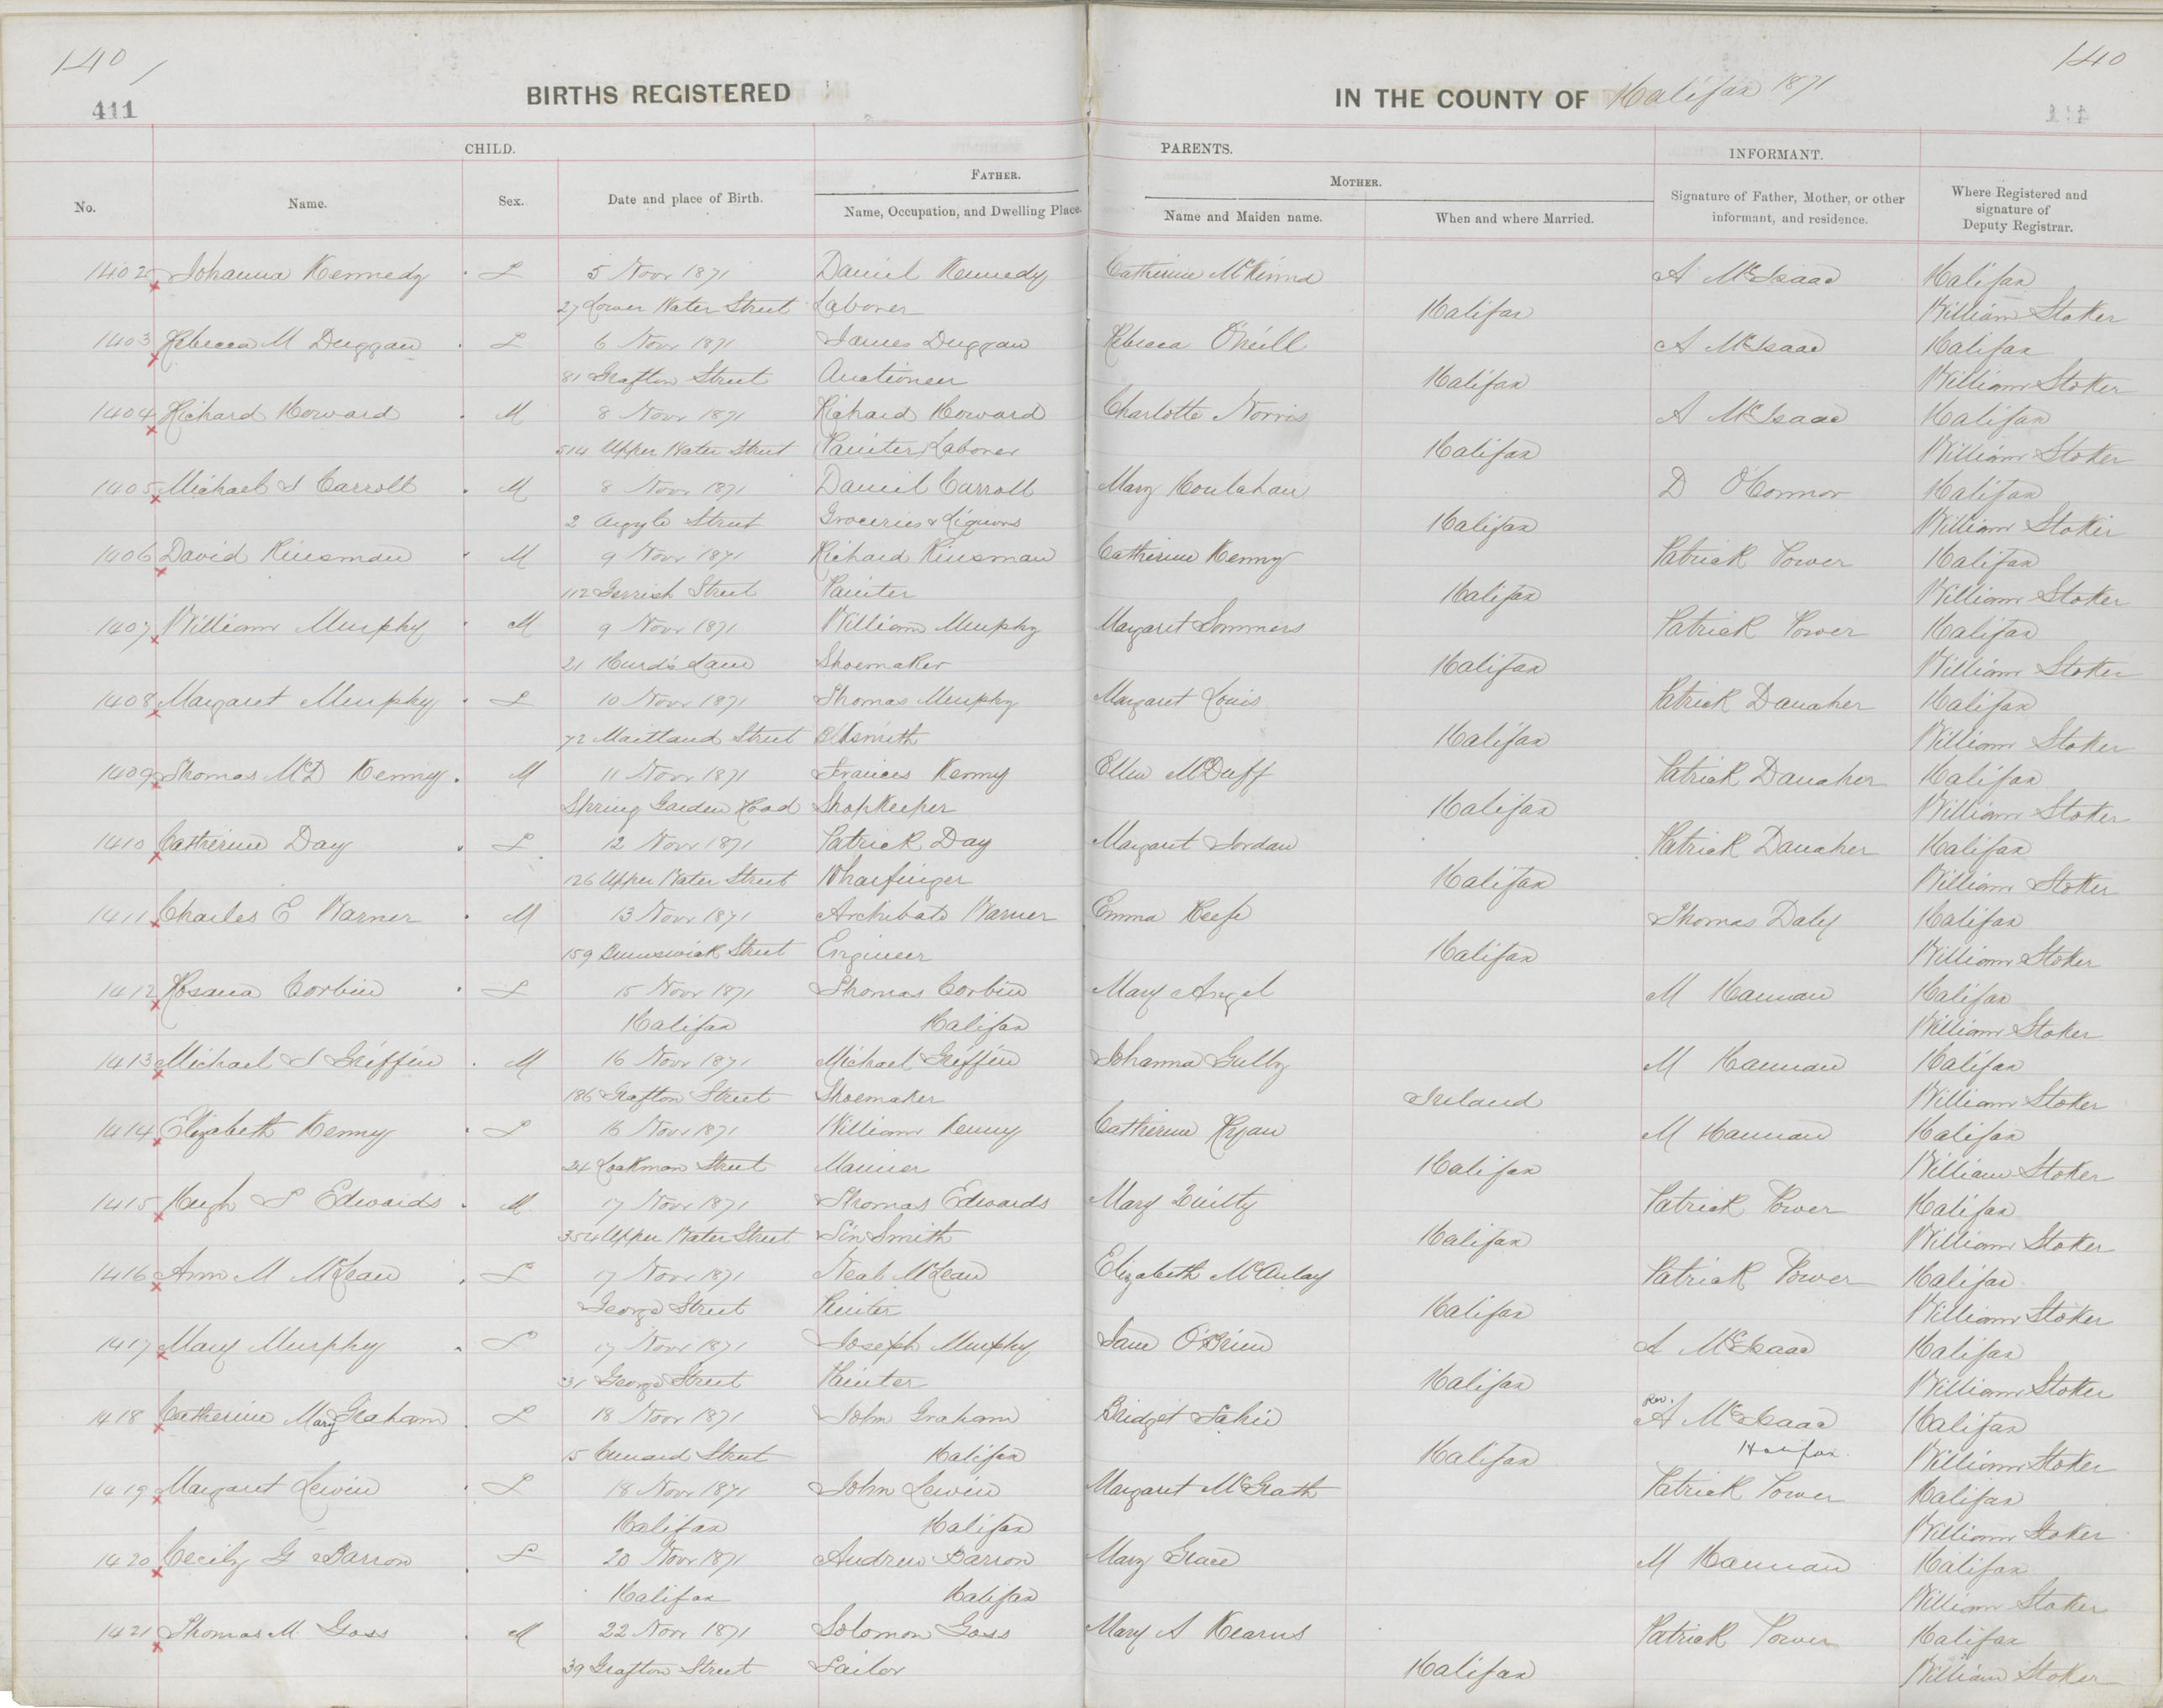 140
140
411
BIRTHS REGISTERED
IN THE COUNTY OF Halifax 1871
CHILD.
PARENTS.
INFORMANT.
No.
Name.
Sex.
Date and place of Birth.
FATHER.
Name, Occupation, and Dwelling Place.
MOTHER.
Name and Maiden name.
When and where Married.
Signature of Father, Mother, or other
informant, and residence.
Where Registered and
signature of
Deputy Registrar.
1402 Johanna Kennedy F 5 Novr 1871 Daniel Kennedy Catherine A McIsaac Halifax
27 Lower Water Street Laborer Halifax William Stoker
1403 Rebecca M Duggan F 6 Novr 1871 James Duggan Rebecca O'Neill A McIsaac Halifax
81 Grafton Street Auctioneer Halifax William Stoker
1404 Richard Howard M 8 Novr 1871 Richard Howard Charlotte Norris A McIsaac Halifax
514 Upper Water Street Painter Laborer Halifax William Stoker
1405 Michael J Carroll M 8 Novr 1871 Daniel Carroll Mary Houlahan D O'Connor Halifax
2 Argyle Street Groceries & Liquors Halifax William Stoker
1406 David Kinsman M 9 Novr 1871 Richard Kinsman Catherine Kenny Patrick Power Halifax
112 Gerrish Street Painter Halifax William Stoker
1407 William Murphy M 9 Novr 1871 William Murphy Margaret Sommers Patrick Power Halifax
21 Hurd's Lane Shoemaker Halifax William Stoker
1408 Margaret Murphy F 10 Novr 1871 Thomas Murphy Margaret Louis Patrick Danaher Halifax
72 Maitland Street Blksmith Halifax William Stoker
1409 Thomas McD Kenny M 11 Novr 1871 Frances Kenny Ellen McDuff Patrick Danaher Halifax
Spring Garden Road Shopkeeper Halifax William Stoker
1410 Catherine Day F 12 Novr 1871 Patrick Day Margaret Jordan Patrick Danaher Halifax
126 Upper Water Street Wharfinger Halifax William Stoker
1411 Charles E Warner M 13 Novr 1871 Archibald Warner Emma Keefe Thomas Daly Halifax
159 Brunswick Street Engineer Halifax William Stoker
1412 Rosana Corbin F 15 Novr 1871 Thomas Corbin Mary Angel M Hannan Halifax
Halifax Halifax William Stoker
1413 Michael J Griffin M 16 Novr 1871 Michael Griffin Johanna M Hannan Halifax
186 Grafton Street Shoemaker Ireland William Stoker
1414 Elizabeth Kenny F 16 Novr 1871 William Kenny Catherine Ryan M Hannan Halifax
24 Lockman Street Mariner Halifax William Stoker
1415 Hugh Edwards M 17 Novr 1871 Thomas Edwards Mary Quilty Patrick Power Halifax
354 Upper Water Street Tin Smith Halifax William Stoker
1416 Ann M McLean F 17 Novr 1871 Neal McLean Elizabeth McAulay Patrick Power Halifax
George Street Halifax William Stoker
1417 Mary Murphy F 17 Novr 1871 Joseph Murphy Jane O'Brien A McIsaac Halifax
31 George Street Halifax William Stoker
1418 Catherine Mary Graham F 18 Novr 1871 John Graham Bridget Rev. A McIsaac Halifax
15 Cunard Street Halifax Halifax Halifax William Stoker
1419 Margaret Lewin F 18 Novr 1871 John Lewin Margaret McGrath Patrick Power Halifax
Halifax Halifax William Stoker
1420 Cecily G Barron F 20 Novr 1871 Andrew Barron Mary Grace M Hannan Halifax
Halifax Halifax William Stoker
1421 Thomas M Goss M 22 Novr 1871 Solomon Goss Mary A Kearns Patrick Power Halifax
39 Grafton Street Sailor Halifax William Stoker